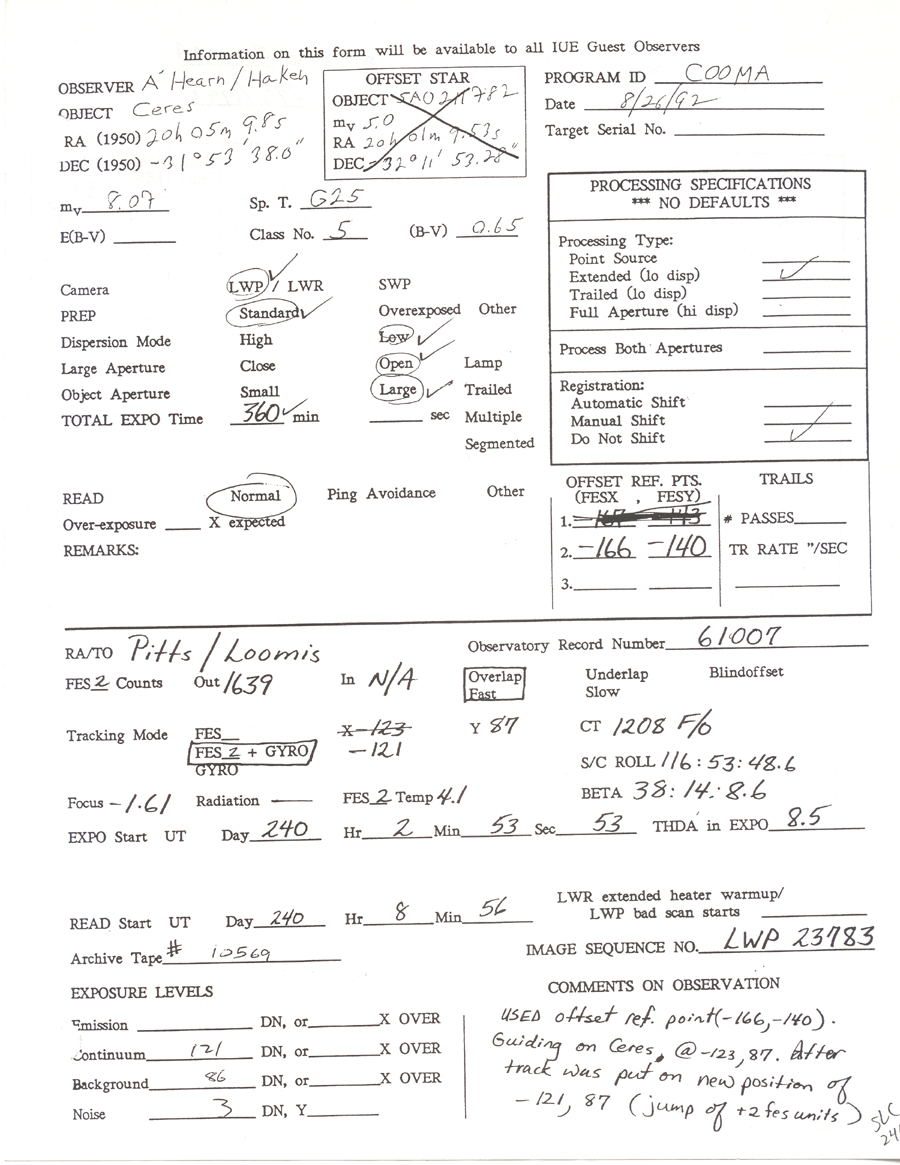 Information on this form will be available to all IUE Guest Observers
OBSERVER A'Hearn/Haken
OBJECT Ceres
RA (1950) 20h 05m 9.8s
DEC (1950) -31° 53' 38.0"
OFFSET STAR
OBJECT SAO 211782
mv 5.0
RA 20h 01m 9.53s
DEC -32° 11' 53.28"
PROGRAM ID COOMA
Date 8/26/92
Target Serial No.
mv 8.07 Sp. T. G25
E(B-V) Class No. 5 (B-V) 0.65
Camera LWP / LWR SWP
PREP Standard Overexposed Other
Dispersion Mode High Low
Large Aperture Close Open Lamp
Object Aperture Small Large Trailed
TOTAL EXPO Time 360 min sec Multiple
Segmented
PROCESSING SPECIFICATIONS
*** NO DEFAULTS ***
Processing Type:
Point Source
Extended (lo disp)
Trailed (lo disp)
Full Aperture (hi disp)
Process Both Apertures
Registration:
Automatic Shift
Manual Shift
Do Not Shift
READ Normal Ping Avoidance Other
Over-exposure X expected
REMARKS:
OFFSET REF. PTS.
(FESX , FESY)
1. -167 -143
2. -166 -140
3.
TRAILS
# PASSES
TR RATE "/SEC
RA/TO Pitts/Loomis Observatory Record Number 61007
FES 2 Counts Out 1639 In N/A Overlap Underlap Blindoffset
Fast Slow
Tracking Mode FES X -123 Y 87 CT 1208 F/O
FES 2 + GYRO -121
GYRO S/C ROLL 116:53:48.6
Focus -1.61 Radiation — FES 2 Temp 4.1 BETA 38:14:8.6
EXPO Start UT Day 240 Hr 2 Min 53 Sec 53 THDA in EXPO 8.5
LWR extended heater warmup/
READ Start UT Day 240 Hr 8 Min 56 LWP bad scan starts
Archive Tape # 10569 IMAGE SEQUENCE NO. LWP 23783
EXPOSURE LEVELS
Emission DN, or X OVER
Continuum 121 DN, or X OVER
Background 86 DN, or X OVER
Noise 3 DN, Y
COMMENTS ON OBSERVATION
USED offset ref. point(-166,-140).
Guiding on Ceres, @ -123, 87. After
track was put on new position of
-121, 87 (jump of +2 fes units)